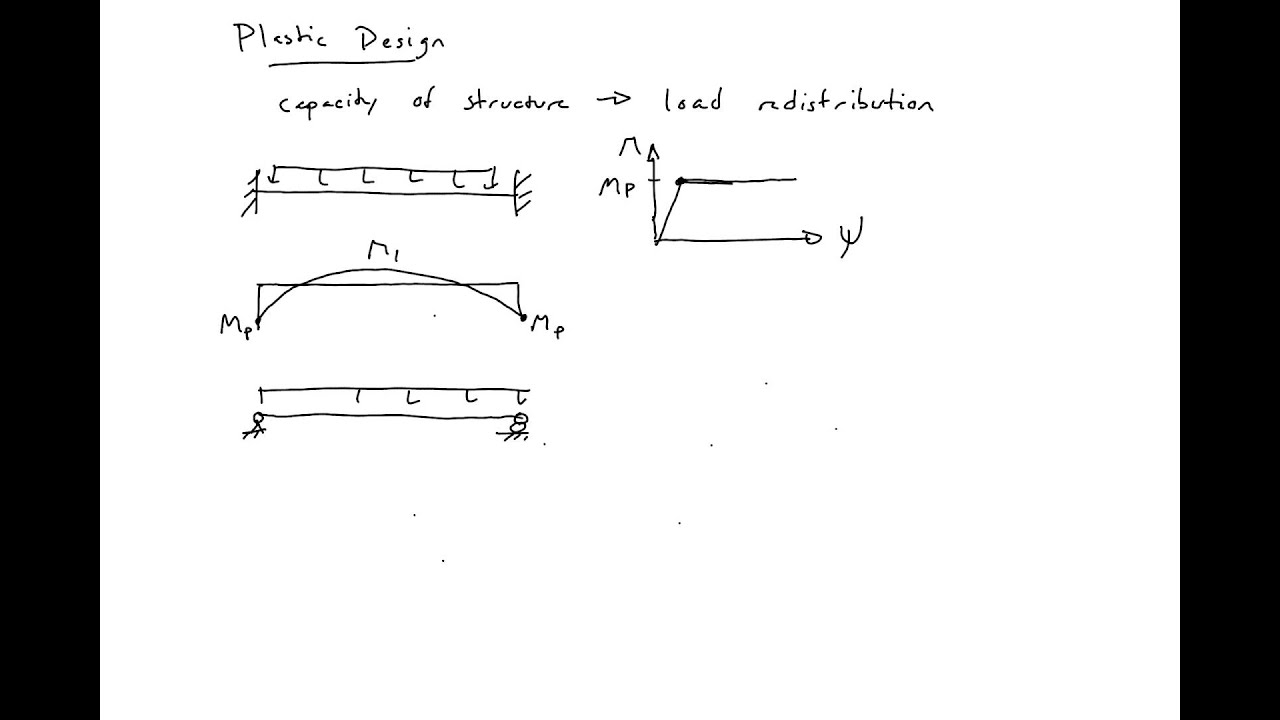 Plastic Design
capacity of structure → load redistribution
M
Mp
ψ
M1
Mp Mp